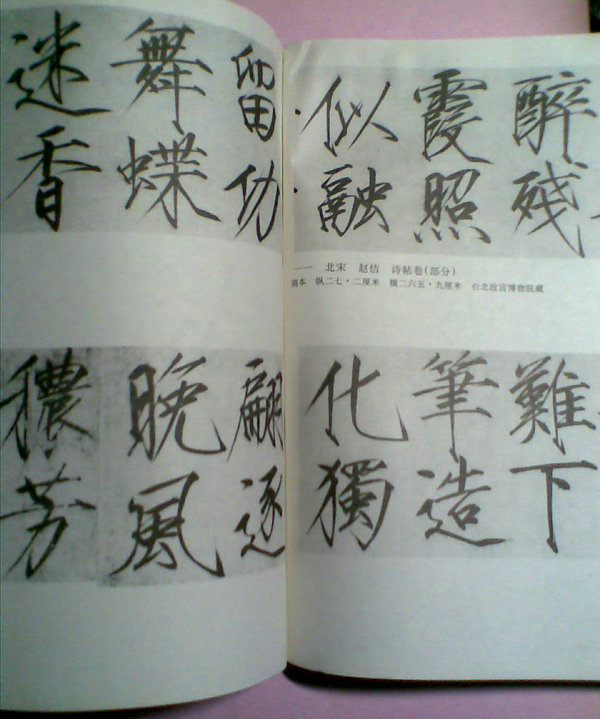 醉殘
霞照
似融
一一 北宋 赵佶 诗帖卷(部分)
绢本 纵二七·二厘米 横二六五·九厘米 台北故宫博物院藏
難下
筆造
化獨
留功
舞蝶
迷香
翩逐
晚風
穠芳